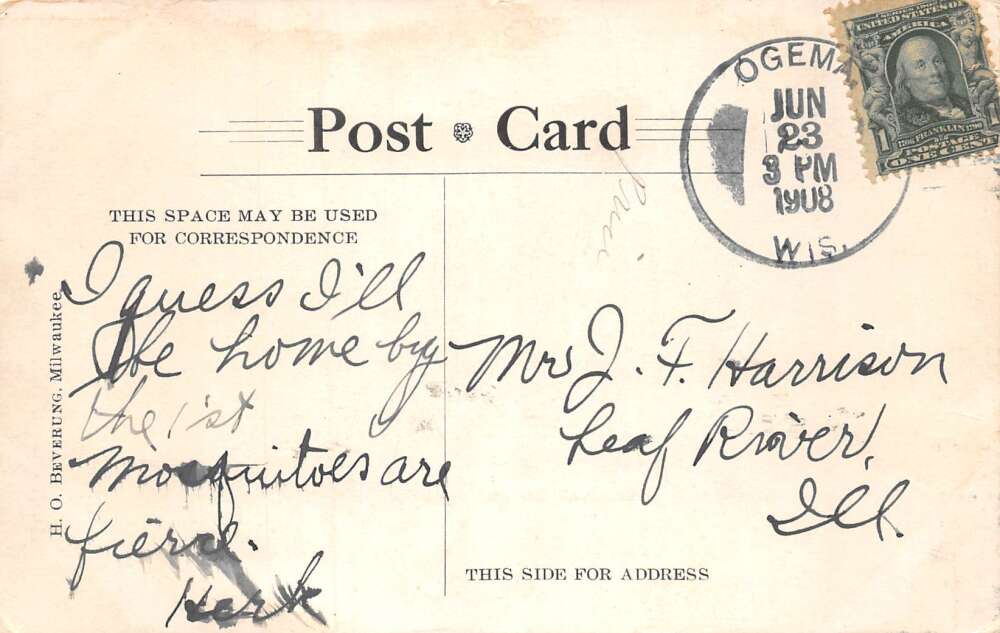 OGEMA
JUN
23
3 PM
1908
WIS.
SERIES 1902
UNITED STATES OF
AMERICA
1706 FRANKLIN 1790
1 POSTAGE 1
ONE CENT
Post Card
THIS SPACE MAY BE USED
FOR CORRESPONDENCE
I guess I'll
be home by
the 1st
Mosquitoes are
fierce.
Herb
Mrs J. F. Harrison
Leaf River,
Ill.
THIS SIDE FOR ADDRESS
H. O. BEVERUNG, Milwaukee